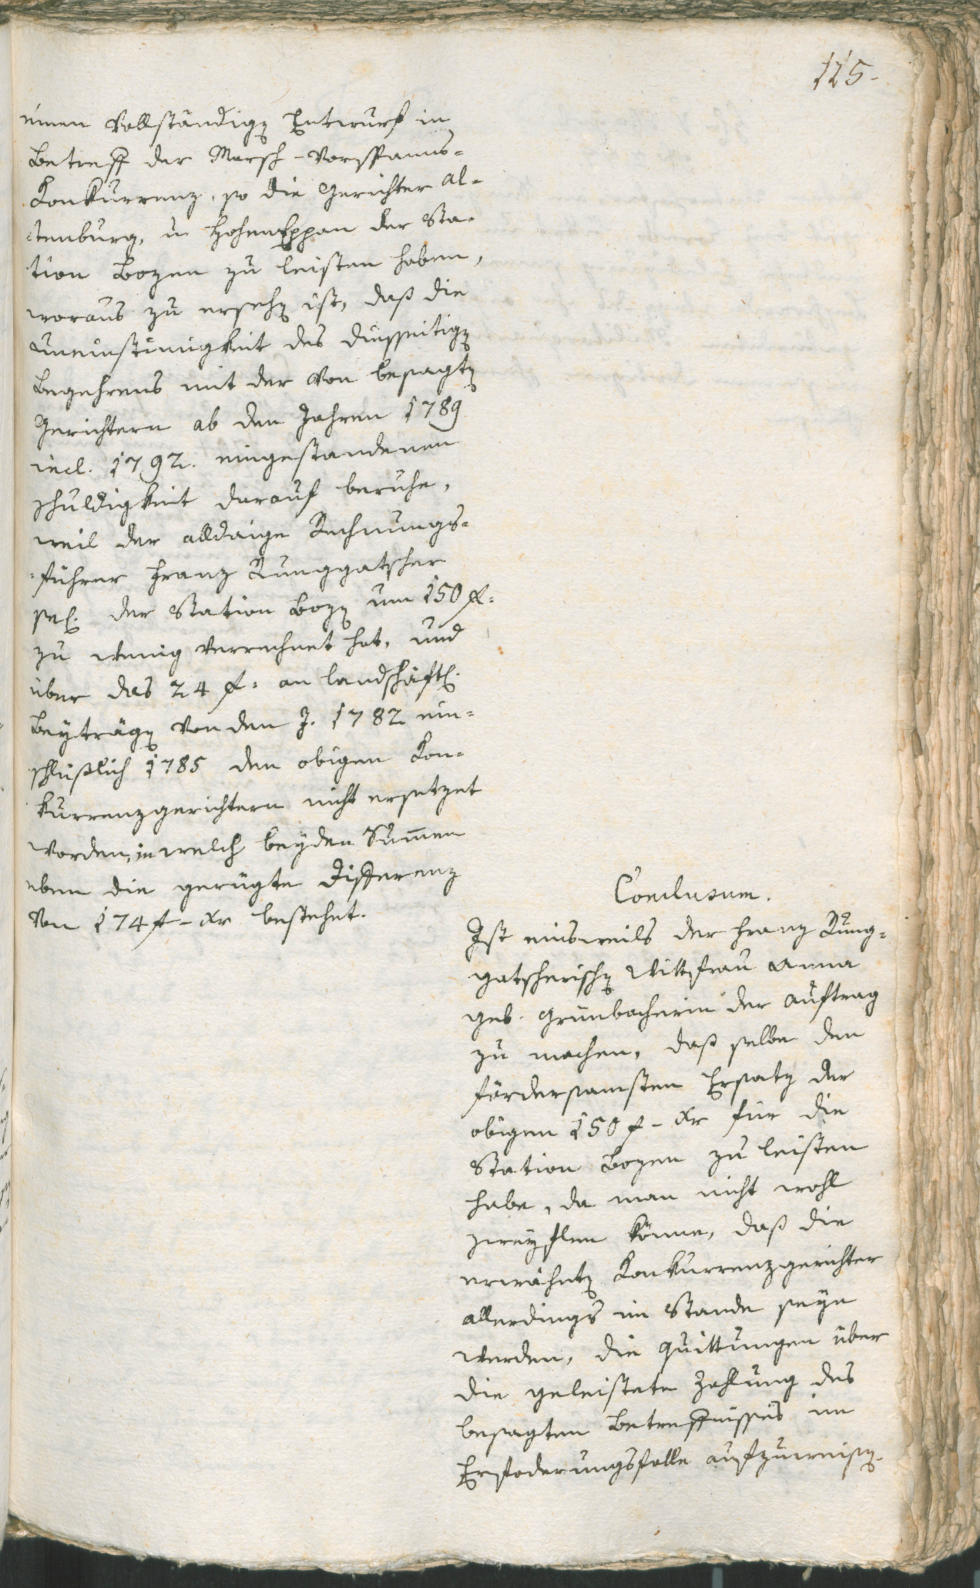 115.
einen vollständigen Entwurf in
Betreff der Marsch-Vorspanns-
Konkurrenz, so die Gerichter Al-
tenburg, u Hoheneppan der Sta-
tion Bozen zu leisten haben,
woraus zu ersehen ist, daß die
Uneinstimigkeit des diesseitigen
Begehrens mit der von besagten
Gerichtern ab den Jahren 1789
incl. 1792. eingestandenen
Schuldigkeit darauf beruhe,
weil der alldaige Rechnungs-
führer Franz Runggatscher
sel. der Station Bozen um 150 f.
zu wenig verrechnet hat, und
über das 24 f. an landschäftl.
Beyträgen von den J. 1782 ein-
schlüßlich 1785 den obigen Kon-
kurrenzgerichtern nicht ersetzet
worden, in welch beyden Summen
eben die gerügte Differenz
von 174 f - xr bestehet.
Conclusum.
Ist einsweils der Franz Rung-
gatscherischen Wittfrau Anna
geb. Grünbacherin der Auftrag
zu machen, daß selbe den
fördersamsten Ersatz der
obigen 150 f - xr für die
Station Bozen zu leisten
habe, da man nicht wohl
zweyflen könne, daß die
erwähnten Konkurrenzgerichter
allerdings im Stande seyn
werden, die Quittungen über
die geleistete Zahlung des
besagten Betreffnisses im
Erfoderungsfalle aufzuweisen.